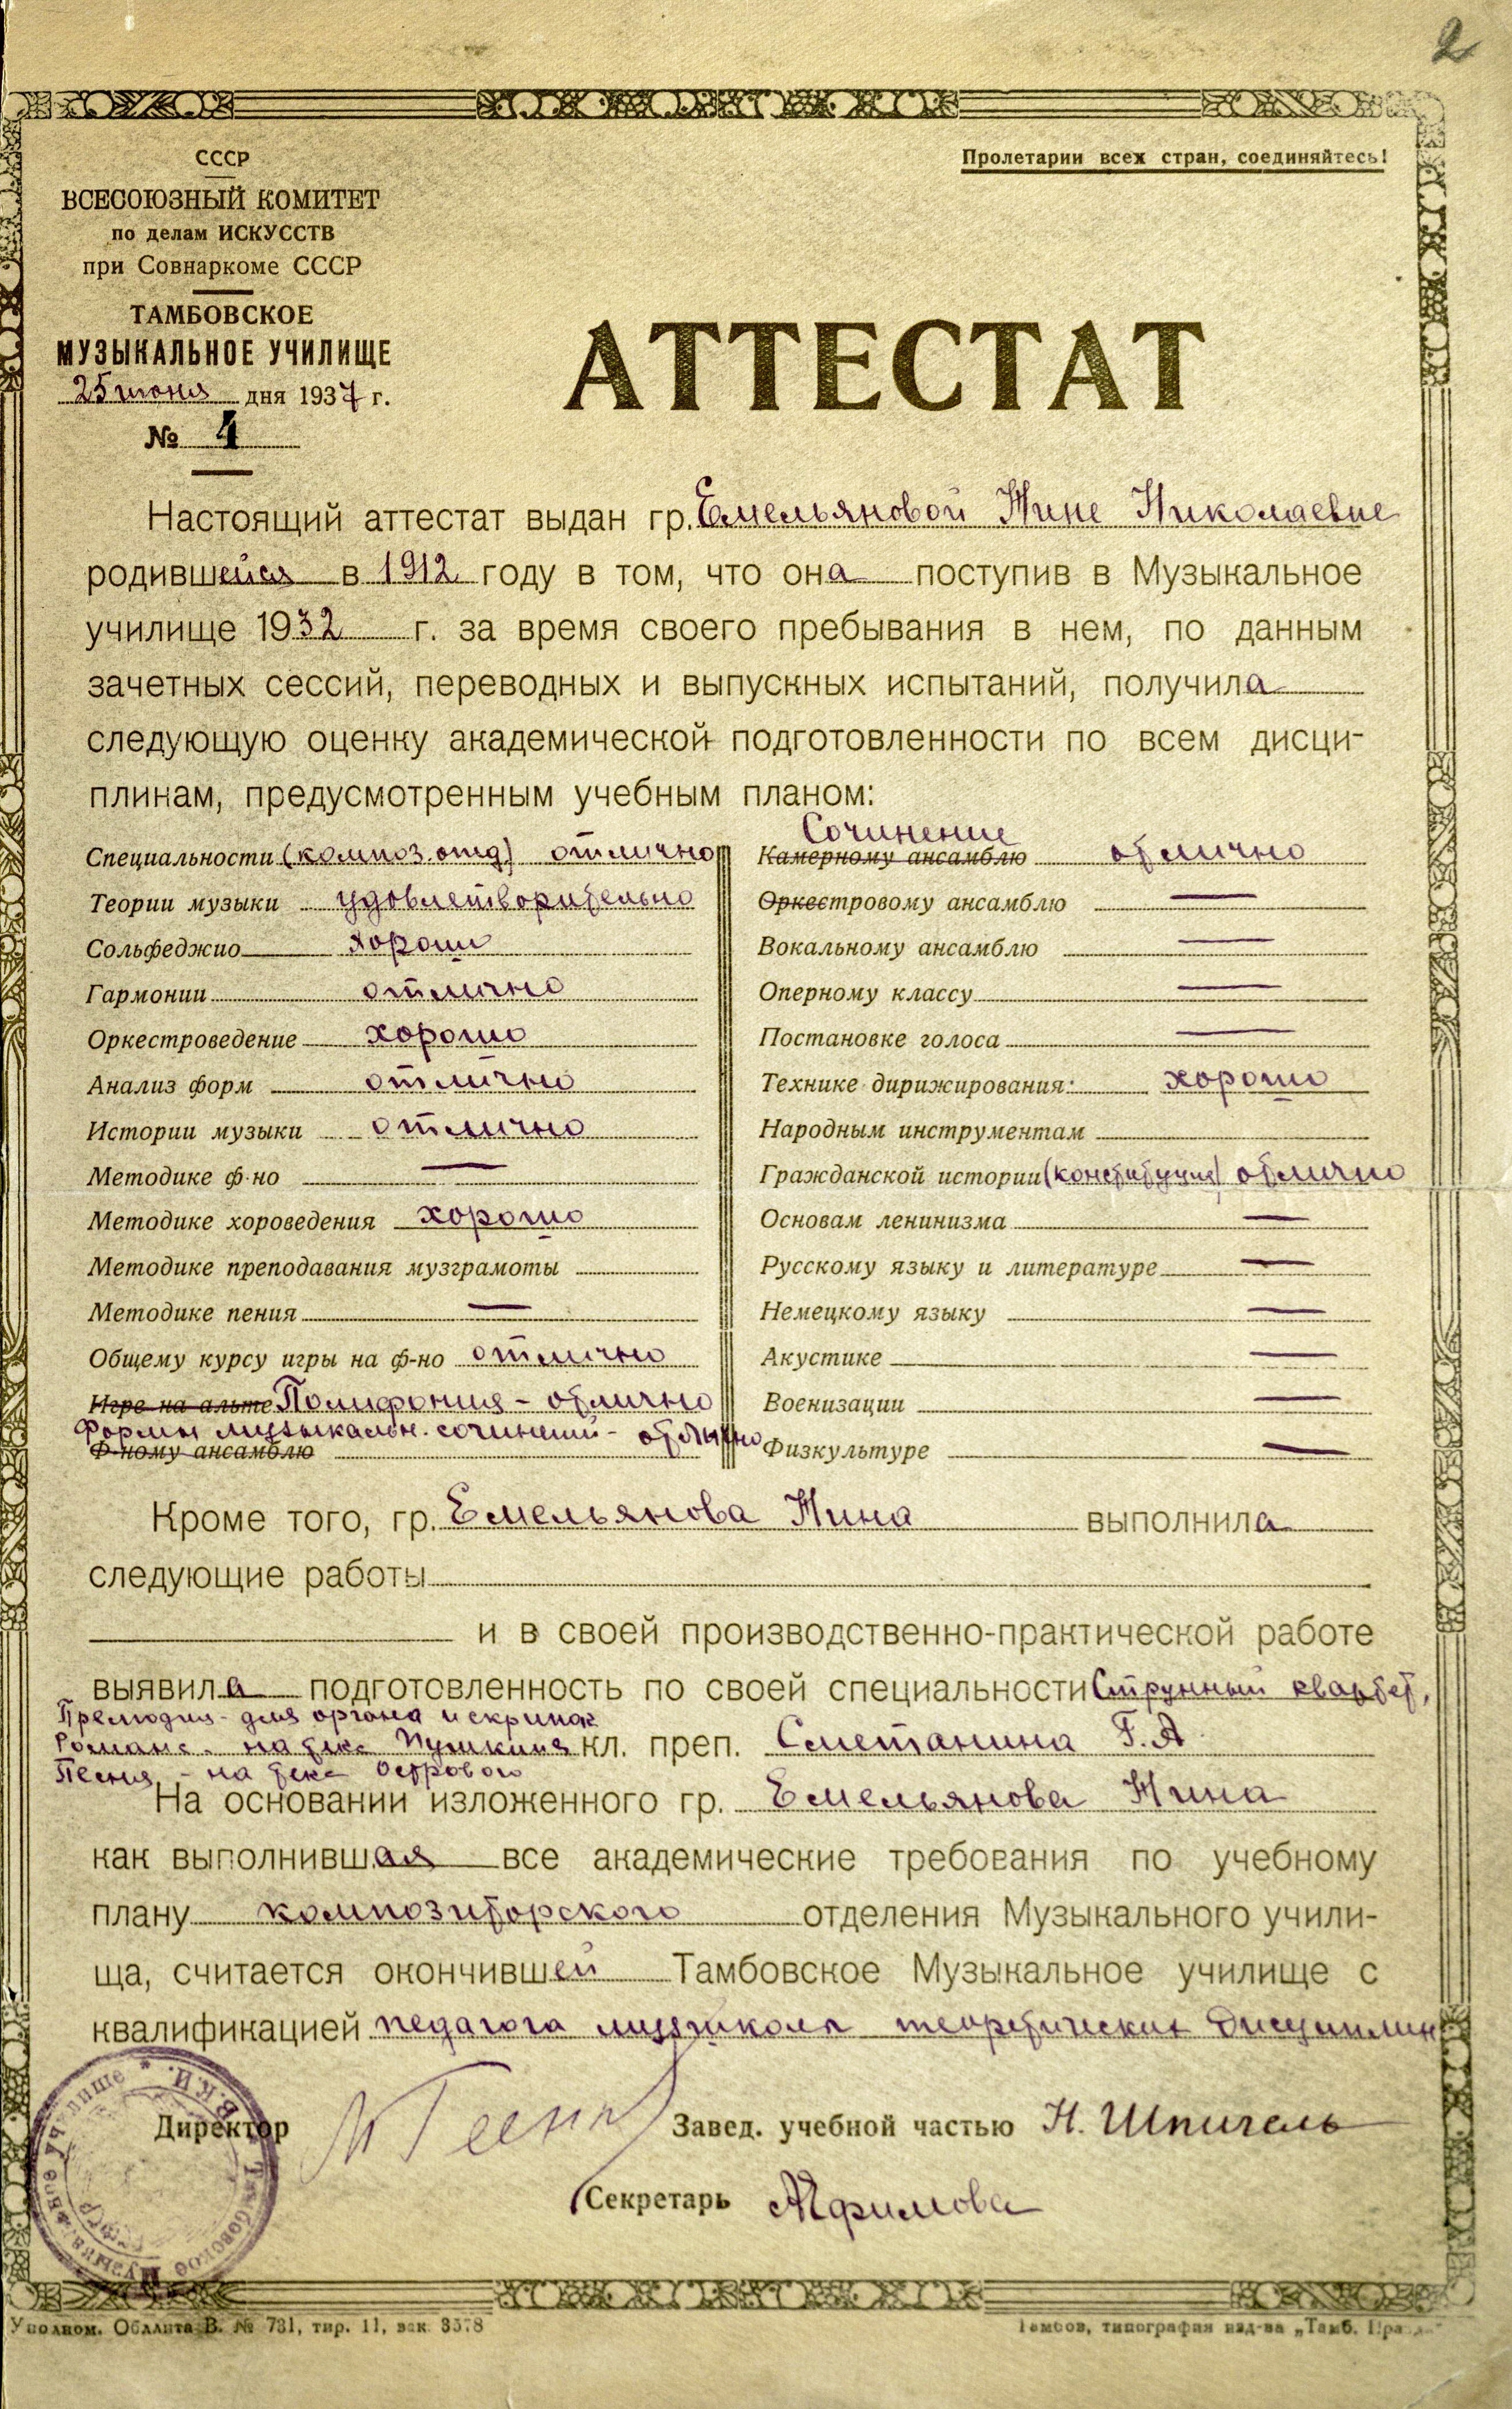 2
Пролетарии всех стран, соединяйтесь!
СССР
ВСЕСОЮЗНЫЙ КОМИТЕТ
по делам ИСКУССТВ
при Совнаркоме СССР
ТАМБОВСКОЕ
МУЗЫКАЛЬНОЕ УЧИЛИЩЕ
25 июня дня 1937 г.
№ 4
АТТЕСТАТ
Настоящий аттестат выдан гр. Емельяновой Нине Николаевне
родившейся в 1912 году в том, что она поступив в Музыкальное
училище 1932 г. за время своего пребывания в нем, по данным
зачетных сессий, переводных и выпускных испытаний, получила
следующую оценку академической подготовленности по всем дисци-
плинам, предусмотренным учебным планом:
Специальности (композ. отд) отлично
Теории музыки удовлетворительно
Сольфеджио хорошо
Гармонии отлично
Оркестроведение хорошо
Анализ форм отлично
Истории музыки отлично
Методике ф-но —
Методике хороведения хорошо
Методике преподавания музграмоты
Методике пения —
Общему курсу игры на ф-но отлично
Игре на альте Полифония - отлично
Формы музыкальн. сочинений - отлично
Ф-ному ансамблю
Сочинение
Камерному ансамблю отлично
Оркестровому ансамблю —
Вокальному ансамблю —
Оперному классу —
Постановке голоса —
Технике дирижирования: хорошо
Народным инструментам
Гражданской истории (конституция) отлично
Основам ленинизма —
Русскому языку и литературе —
Немецкому языку —
Акустике —
Военизации —
Физкультуре —
Кроме того, гр. Емельянова Нина выполнила
следующие работы
и в своей производственно-практической работе
выявила подготовленность по своей специальности Струнный квартет,
Прелюдия - для органа и скрипок
Романс - на текс Пушкина кл. преп. Сметанина Г. А.
Песня - на текс Острового
На основании изложенного гр. Емельянова Нина
как выполнившая все академические требования по учебному
плану композиторского отделения Музыкального учили-
ща, считается окончившей Тамбовское Музыкальное училище с
квалификацией педагога музшколы теоретических дисциплин
Директор
Завед. учебной частью Н. Шпигель
Секретарь Афимова
В.К.И. * Тамбовское Музыкальное Училище *
Уполном. Обллита В. № 731, тир. 11, зак. 3578
Тамбов, типография изд-ва „Тамб. Правда"